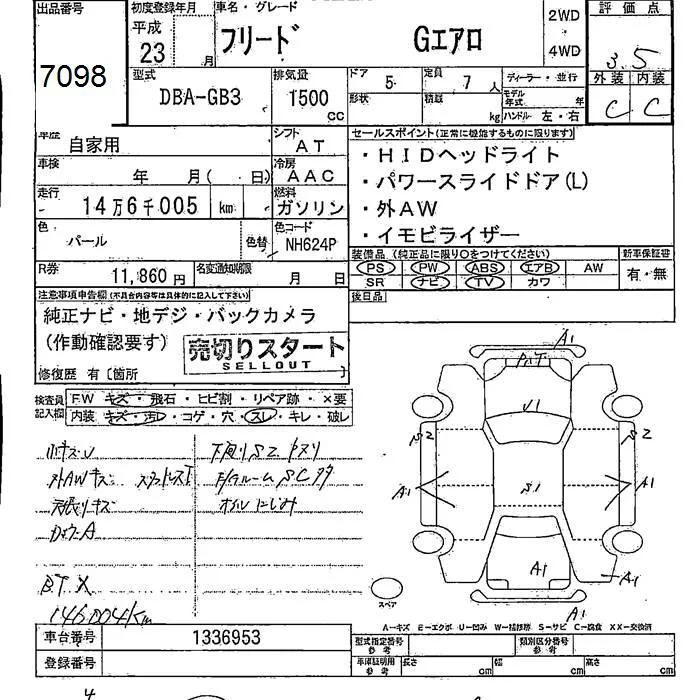 出品番号
7098
初度登録年月
平成
23
月
車名・グレード
フリード Gエアロ
2WD
4WD
評価点
3.5
外装 内装
C C
型式
DBA-GB3
排気量
1500
cc
ドア
5
定員
7
人
形状
積載
kg
ディーラー・並行
モデル年式
年
ハンドル 左・右
車歴
自家用
シフト
AT
車検
年 月( 日)
冷房
AAC
走行
14万6千005
km
燃料
ガソリン
色
パール
色替
色コード
NH624P
R券
11,860 円
名変通知期限
月 日
セールスポイント(正常に機能するものに限ります)
・HIDヘッドライト
・パワースライドドア(L)
・外AW
・イモビライザー
装備品 (純正品に限り○をつけてください)
新車保証書
PS PW ABS エアB AW
SR ナビ TV カワ
有・無
後日品
注意事項申告欄(不具合内容等は具体的に記入して下さい)
純正ナビ・地デジ・バックカメラ
(作動確認要す)
売切りスタート
SELLOUT
修復歴 有〔箇所
検査員記入欄
FW キズ・飛石・ヒビ割・リペア跡・×要
内装 キズ・汚レ・コゲ・穴・スレ・キレ・破レ
小キズU
外AWキズ
天張りキズ
B.T X
146004km
下廻りS2
オイルにじみ
A1
U1
S2
S2
A1
S1
A1
A1
A1
A1
スペア
A-キズ E-エクボ U-凹み W-補修跡 S-サビ C-腐食 XX-交換済
車台番号
1336953
登録番号
型式指定番号
参考
類別区分番号
参考
車庫証明用
参考
長さ
cm
幅
cm
高さ
cm
4